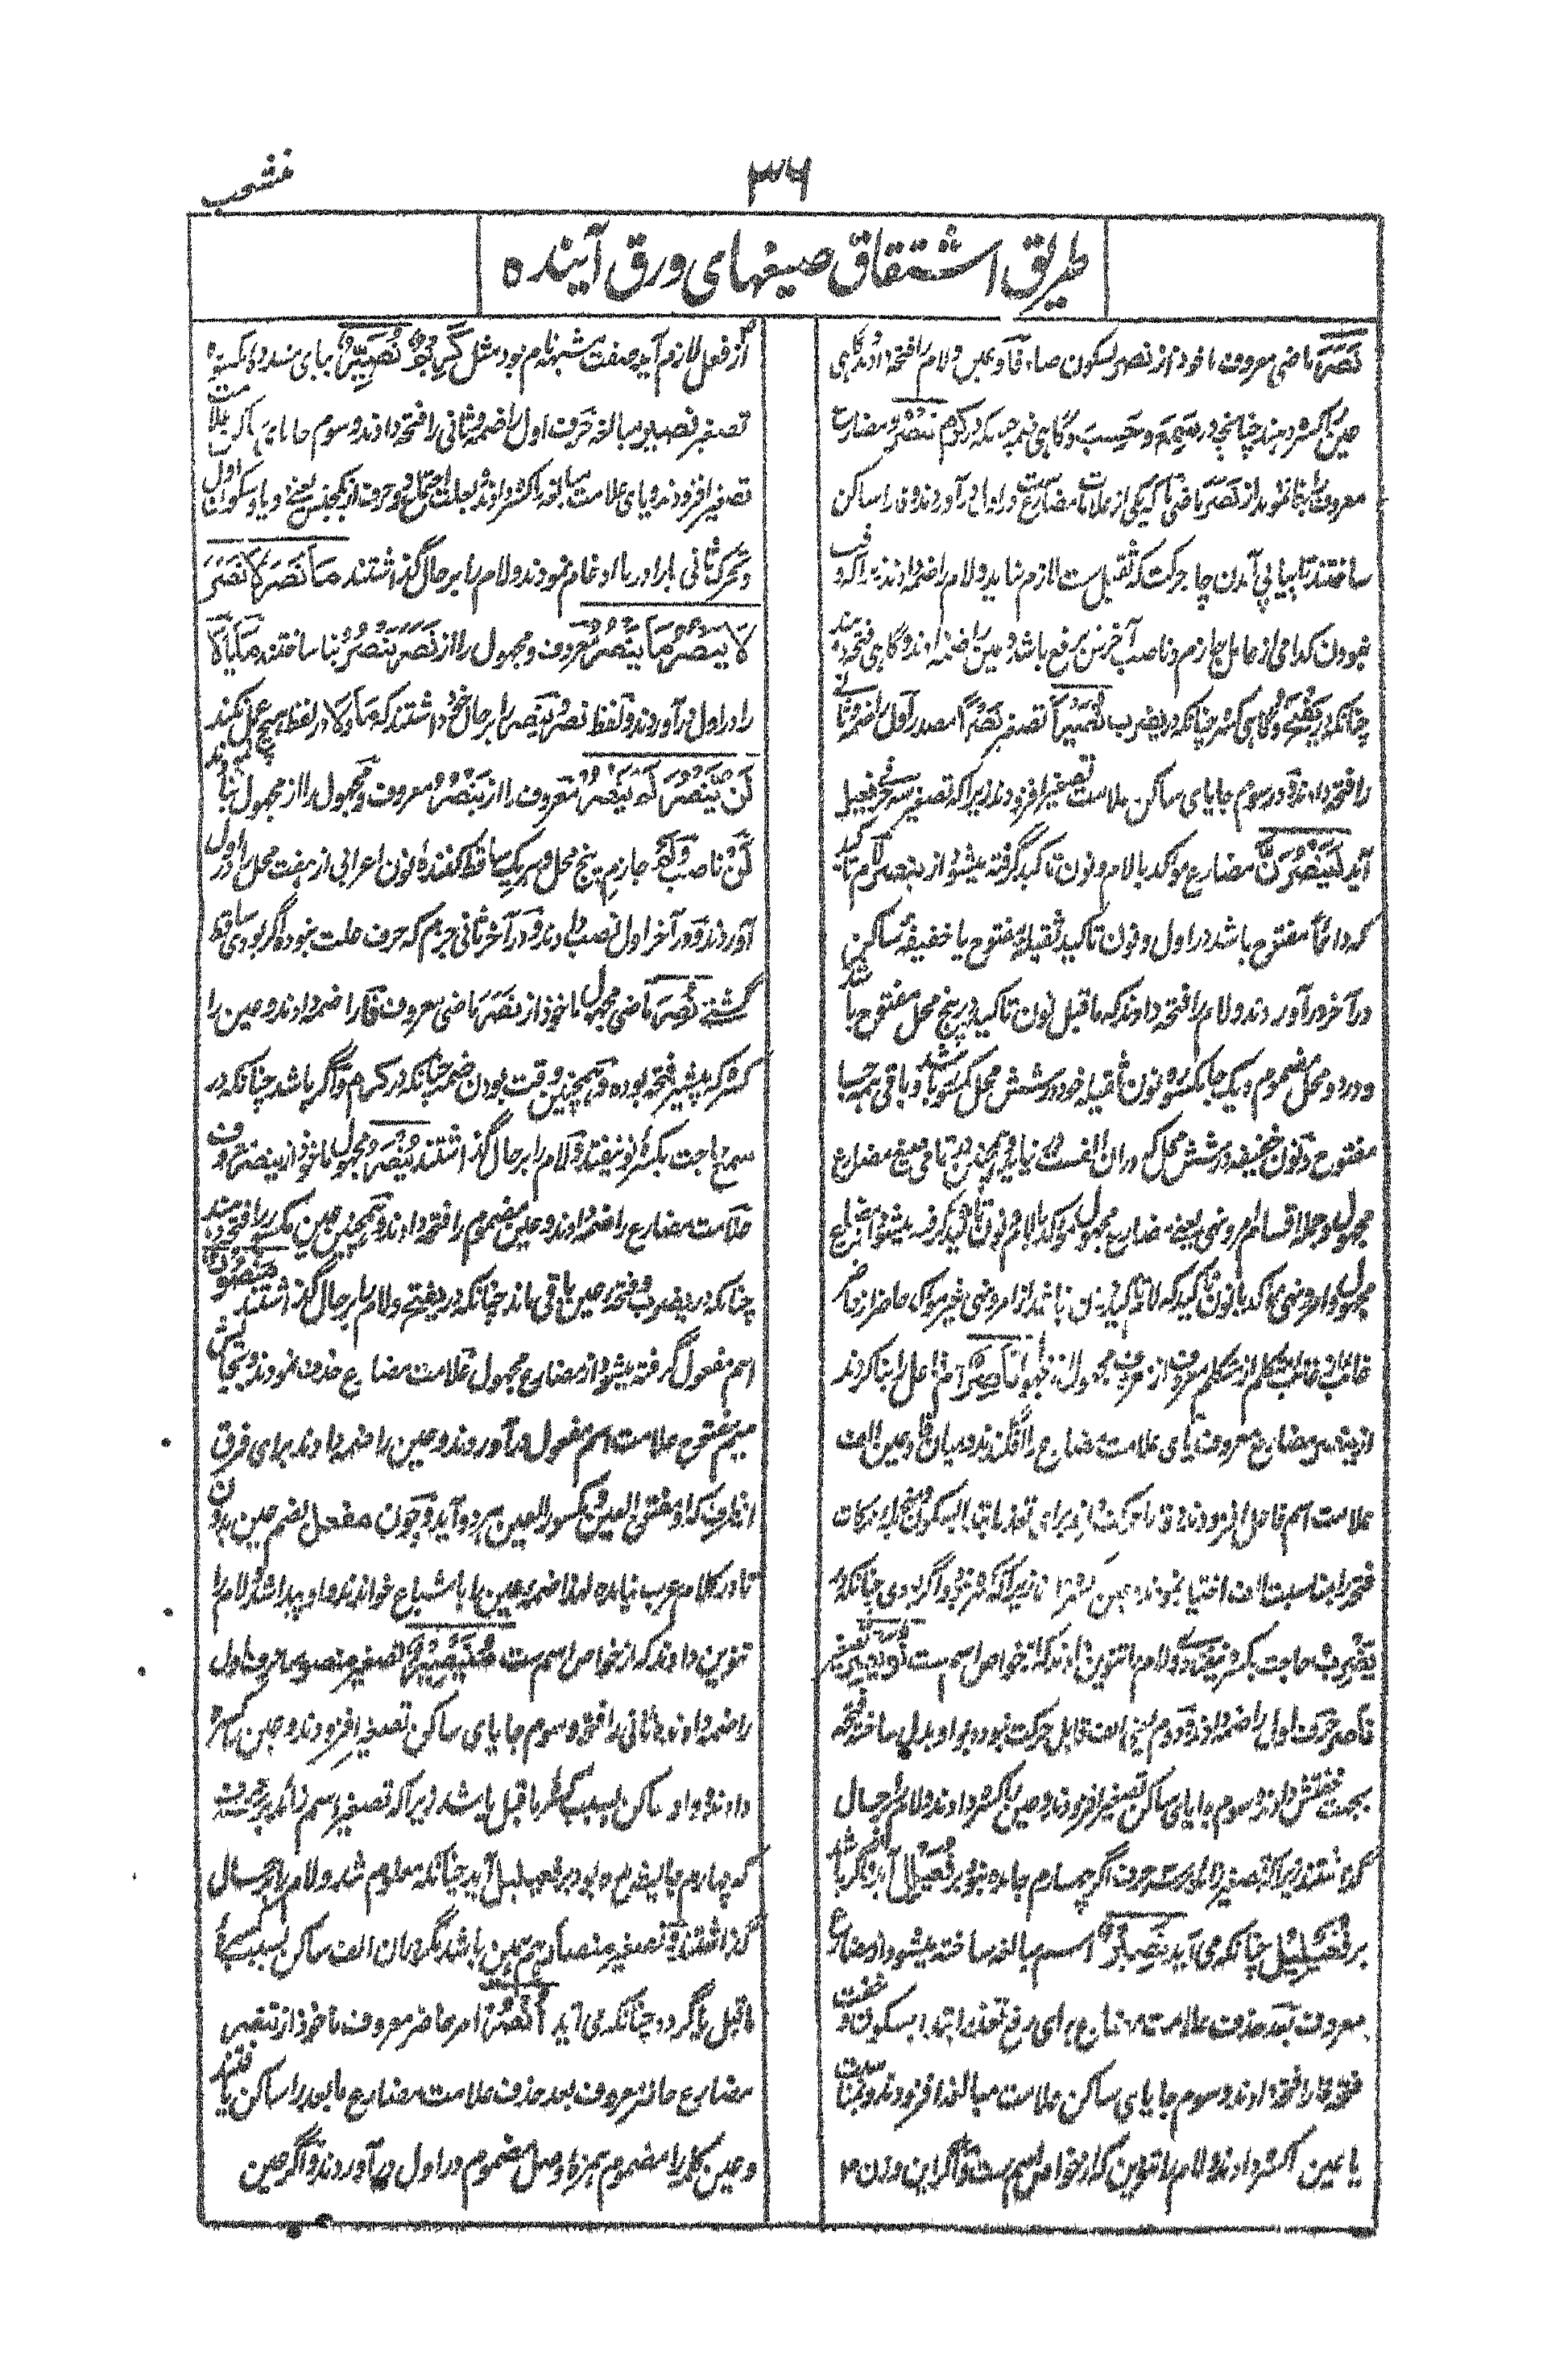 ۳۶
منشعب
طریق اشتقاق صیغهای ورق آینده
نَصَرَ ماضی معروف ماخوذ از نصر بسکون صاد فا و عین و لام را فتحه دادند گاهی
عین را کسره دهند چنانچه در سَمِعَ و حَسِبَ و گاهی ضمه چنانکه در کَرُمَ یَنْصُرُ مضارع
معروف از نَصَرَ ماضی یکی از علامات مضارع در اول در آوردند و فا را ساکن
ساختند تا پیاپی آمدن چار حرکت که ثقیل ست لازم نیاید و لام را ضمه دادند
نبودن کدامی از عامل جازم و ناصب آخرش برفع باشد و عین را ضمه دادند و گاهی فتحه دهند
چنانکه در یَفْتَحُ و گاهی کسره چنانکه در یضرب نُصَیْرٌ تصغیر نَصْرًا مصدر اول را ضمه و ثانی
را فتحه دادند و در سوم جا یای ساکن علامت تصغیر افزودند زیرا که تصغیر سه حرفی فعیل
آید لَیَنْصُرَنَّ مضارع مؤکد بالام و نون تاکید گرفته میشود از ینصر لام تاکید
که دائما مفتوح باشد در اول و نون تاکید ثقیله مفتوح یا خفیفه ساکن
در آخر در آوردند و لام را فتحه دادند که ماقبل نون تاکید در پنج محل مفتوح باشد
و در دو محل مضموم و یک جا مکسور و نون ثقیله خود در شش محل مکسور باشد و باقی همه جا
مفتوح و نون خفیفه در شش محل که در ان الف ست نیاید و همچنین ست تمامی صیغ مضارع
مجهول و جملا اقسام امر و نهی یعنی مضارع مجهول مؤکد بالام و نون تاکید گرفته میشود از مضارع
مجهول و امر و نهی مؤکد با نون تاکید که لام تاکید در ان نباشد از امر و نهی غیر مؤکد حاضر از حاضر
غائب از غائب متکلم از متکلم معروف از معروف مجهول از مجهول نَاصِرٌ اسم فاعل را بنا کردند
از ینصر مضارع معروف یای علامت مضارع را افکندند و میان فا و عین الف
علامت اسم فاعل افزودند و فا را حرکت دادند برای تعذر ابتدا بسکون و منجمله حرکات
فتحه را بمناسبت الف اختیار نمودند و عین را کسره دادند زیرا که کسره نبود و اگر بودی چنانکه در
یَضْرِبُ حاجت بکسره نیفتادی و لام را تنوین دادند که از خواص اسم ست نُوَیْصِرٌ تصغیر
ناصر حرف اول را ضمه دادند و دوم یعنی الف قابل حرکت نبود بواو بدل ساخته فتحه
بجهت خفتش دادند و سوم جا یای ساکن تصغیر افزودند و عین را کسره دادند و لام را بر حال
گذاشتند زیرا که تصغیر زائد بر سه حرف اگر چهارم جا مده نبود بر فُعَیْلِل آید و اگر باشد
بر فُعَیْلِیْل چنانکه می آید نَصِیْرٌ اسم مبالغه ساخته میشود از مضارع
معروف بعد حذف علامت مضارع برای رفع تعذر ابتدا بسکون
فتحه فا را فتحه دادند و سوم جا یای ساکن علامت مبالغه افزودند و بمناسبت
یا عین را کسره دادند و لام را تنوین که از خواص اسم ست و اگر این وزن
از فعل لازم آید صفت مشبه نام نهند مثل کَرِیْمٌ نُصَیِّرٌ بیای مشدد مکسوره
تصغیر نصیر مبالغه حرف اول را ضمه و ثانی را فتحه دادند و سوم جا یای ساکن علامت
تصغیر افزودند و یای علامت مبالغه را کسره دادند بعلت اجتماع دو حرف از یک جنس یعنی دو یا و سکون اول
و تحرک ثانی یا را در یا ادغام نمودند و لام را بر حال گذاشتند مَا نَصَرَ لَا نَصَرَ
لَا یَنْصُرُ مَا یَنْصُرُ معروف و مجهول را از نَصَرَ یَنْصُرُ بنا ساختند مَا یا لَا
را در اول در آوردند و لفظ نصر و ینصر را بر حال خود داشتند که مَا و لَا در لفظ هیچ عمل نمیکنند
لَنْ یَنْصُرَ لَمْ یَنْصُرْ معروف را از یَنْصُرُ معروف و مجهول را از مجهول بنا
لَنْ ناصب و لَمْ جازم پنج محل و هر یک ساقط کننده نون اعرابی از هفت محل را در اول
آوردند و در آخر اول نصب دادند و در آخر ثانی جزم که حرف علت نبود و اگر بودی ساقط
گشتی نُصِرَ ماضی مجهول ماخوذ از نَصَرَ ماضی معروف فا را ضمه دادند و عین را
کسره که پیشتر فتحه بوده و همچنین وقت بودن ضمه چنانکه در کرم و اگر باشد چنانکه در
سمع حاجت بکسره نو نیفتد و لام را بر حال گذاشتند یُنْصَرُ مجهول ماخوذ از ینصر معروف
علامت مضارع را ضمه دادند و عین مضموم را فتحه دادند و همچنین عین مکسور را فتحه دهند
چنانکه در یضرب و فتحه عین باقی ماند چنانکه در یفتح و لام را بر حال گذاشتند مَنْصُوْرٌ
اسم مفعول گرفته میشود از مضارع مجهول علامت مضارع حذف نمودند و بجایش
میم مفتوح علامت اسم مفعول در آوردند و عین را ضمه دادند برای فرق
از ظرف که او مفتوح العین و مکسور العین هر دو آید و چون مفعل بضم عین بدون
تا در کلام عرب نیامده لهذا ضمه عین را باشباع خواندند واو پیدا شد لام را
تنوین دادند که از خواص اسم ست مُنَیْصِیْرٌ تصغیر منصور حرف اول
را ضمه دادند و ثانی را فتحه و سوم جا یای ساکن تصغیر افزودند و عین را کسره
دادند و واو ساکن بسبب کسره ماقبل یا شد زیرا که تصغیر اسم زائد بر سه حرف
که چهارم جایش مده بود بر فعیلیل آید چنانکه معلوم شد و لام را بر حال
گذاشتند و تصغیر منصار هم همین باشد مگر در ان الف ساکن بسبب کسره
ماقبل یا گردد چنانکه می آید اُنْصُرْ امر حاضر معروف ماخوذ از تنصر
مضارع حاضر معروف بعد حذف علامت مضارع مابعد را ساکن یافتند
و عین کلمه را مضموم همزه وصل مضموم در اول در آوردند و اگر عین